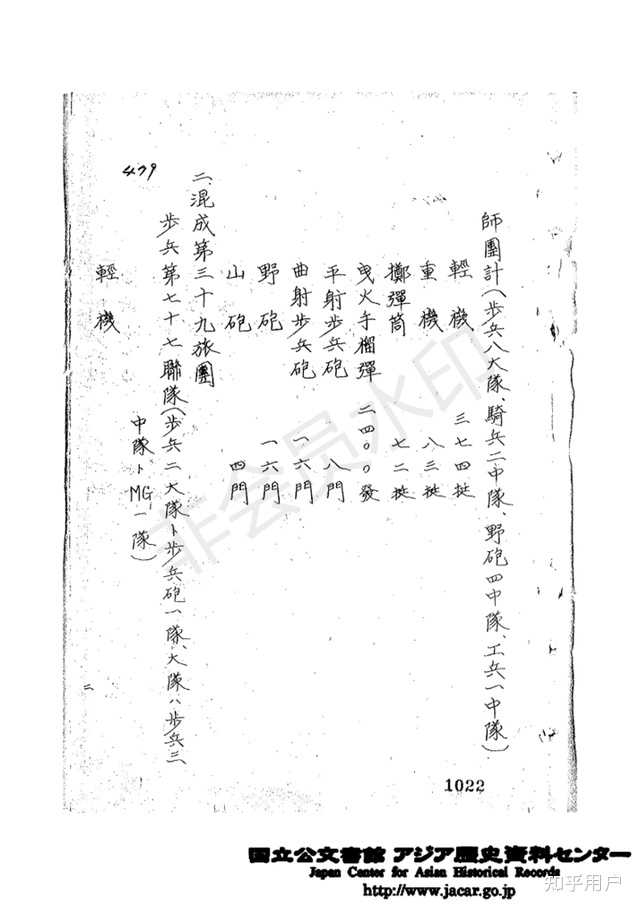 師團計(歩兵八大隊、騎兵二中隊、野砲四中隊、工兵一中隊)
輕機 三七四挺
重機 八三挺
擲彈筒 七二挺
曳火手榴彈 二四〇〇發
平射歩兵砲 八門
曲射歩兵砲 一六門
野砲 一六門
山砲 四門
二、混成第三十九旅團
歩兵第七十七聯隊(歩兵二大隊ト歩兵砲一隊、大隊ハ歩兵三
中隊トMG一隊)
輕機
479
二
1022
非会员水印
国立公文書館 アジア歴史資料センター
Japan Center for Asian Historical Records
http://www.jacar.go.jp
知乎用户